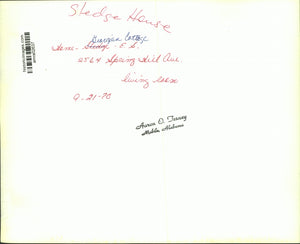 Sledge House
Georgia Cottage
Home - Sledge - E. S.
2564 Spring Hill Ave.
living room
9-21-70
Aaron D. Tenney
Mobile, Alabama